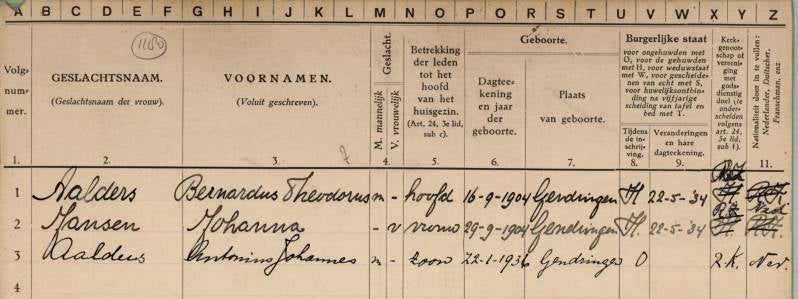 A B C D E F G H I J K L M N O P Q R S T U V W X Y Z
1150
Volg-
num-
mer.
GESLACHTSNAAM.
(Geslachtsnaam der vrouw).
VOORNAMEN.
(Voluit geschreven).
Geslacht.
M. mannelijk
V. vrouwelijk
Betrekking
der leden
tot het
hoofd
van het
huisgezin.
(Art. 24, 3e lid,
sub c).
Geboorte.
Dagtee-
kening
en jaar
der
geboorte.
Plaats
van geboorte.
Burgerlijke staat
voor ongehuwden met
O, voor de gehuwden
met H, voor weduwstaat
met W, voor gescheide-
nen van echt met S,
voor huwelijksontbin-
ding na vijfjarige
scheiding van tafel en
bed met T.
Tijdens
de in-
schrij-
ving.
Veranderingen
en hare
dagteekening.
Kerk-
genoot-
schap of
vereeni-
ging
met
gods-
dienstig
doel (te
onder-
scheiden
volgens
art. 24,
3e lid,
sub f).
Nationaliteit door in te vullen:
Nederlander, Duitscher,
Franschman, enz.
1. 2. 3. 4. 5. 6. 7. 8. 9. 10. 11.
1 Aalders Bernardus Theodorus m - hoofd 16-9-1904 Gendringen H 22-5-'34
2 Jansen Johanna - v vrouw 29-9-1904 Gendringen H. 22-5-'34 R.K. Ned
3 Aalders Antonius Johannes m - zoon 22-1-1936 Gendringen O R.K. Ned.
4